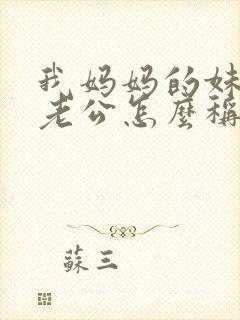 我妈妈的妹
老公怎麼稱
蘇三